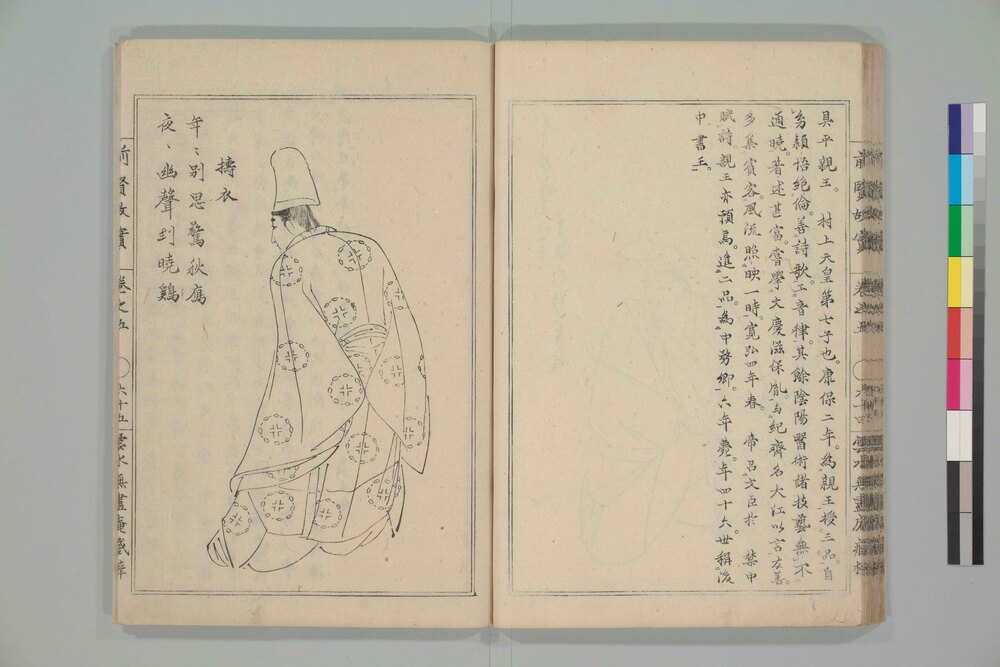 具平親王。 村上天皇第七子也。康保二年。為親王授三品自
幼頴悟絶倫。善詩歌工音律。其餘陰陽醫術諸技藝無不
通曉。著述甚富嘗學文慶滋保胤與紀齊名大江以言友善。
多集賓客。風流照映一時。寛弘四年春。 帝召文臣於 禁中
賦詩。親王亦預焉。進二品。為中務卿。六年薨年四十六。世稱後
中書王。
擣衣
年〻別思驚秋鴈
夜〻幽聲到曉鷄
前賢故實 卷之五 六十五 雲水無盡庵藏梓